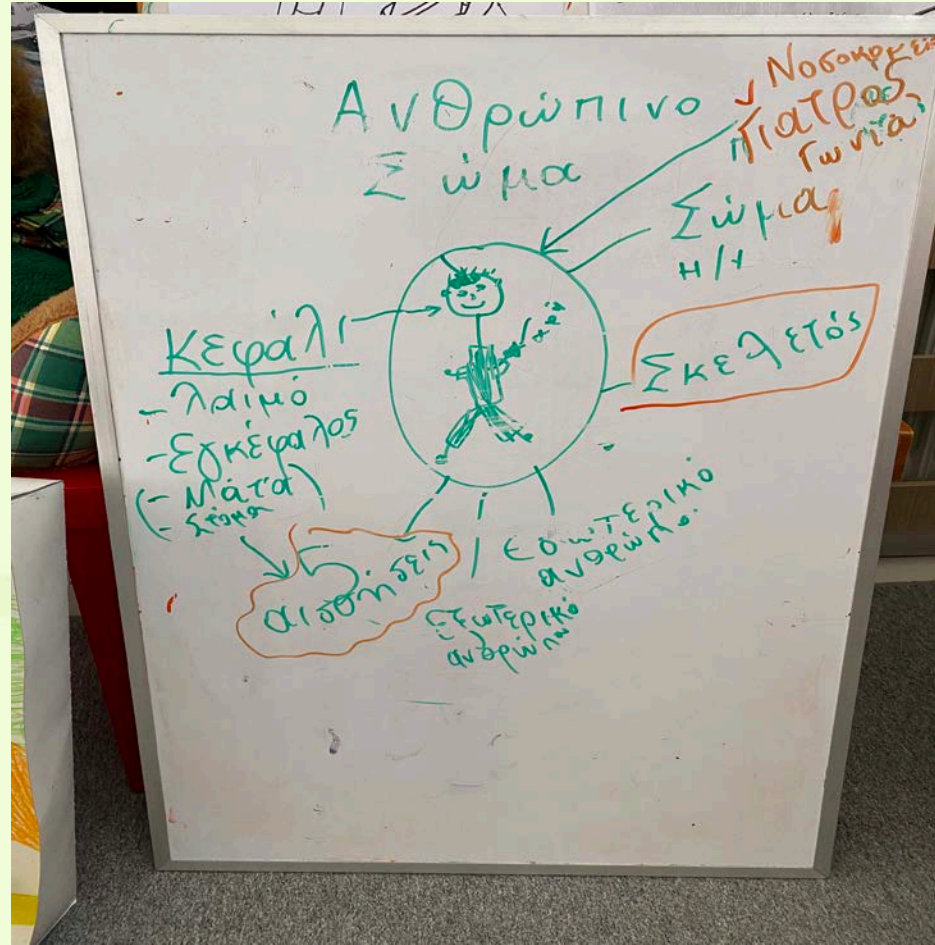 Ανθρώπινο
Σώμα
Νοσοκομείο
Γιατρός
Γωνιά
Σώμα
Η/Υ
Σκελετός
Κεφάλι
- λαιμό
- Εγκέφαλος
(- Μάτα)
(- Στόμα
αισθήσεις
Εσωτερικό
ανθρώπου
εξωτερικό
ανθρώπου